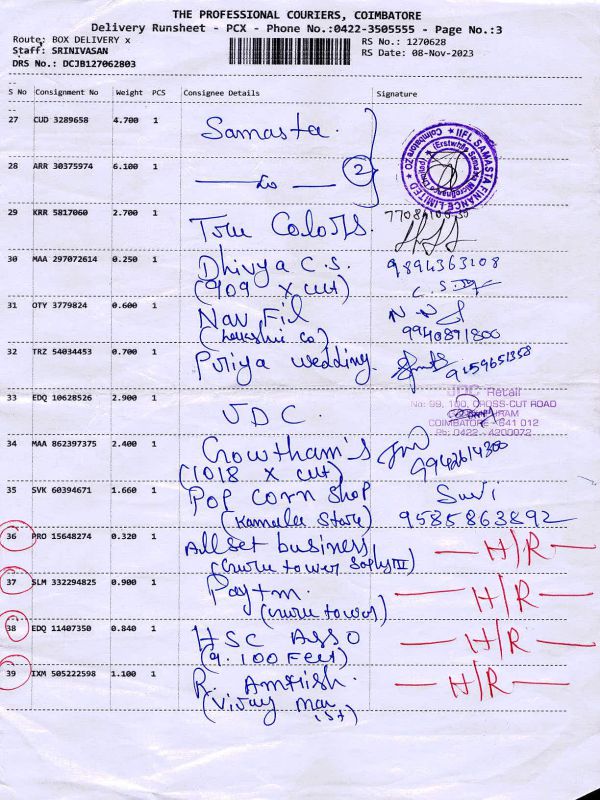 THE PROFESSIONAL COURIERS, COIMBATORE
Delivery Runsheet - PCX - Phone No.:0422-3505555 - Page No.:3
Route: BOX DELIVERY x
RS No.: 1270628
Staff: SRINIVASAN
RS Date: 08-Nov-2023
DRS No.: DCJB127062803
S No Consignment No Weight PCS Consignee Details Signature
27 CUD 3289658 4.700 1 Samasta.
28 ARR 30375974 6.100 1 — Do — 2
IIFL SAMASTA FINANCE LIMITED
29 KRR 5817060 2.700 1 True Colors.
30 MAA 297072614 0.250 1 Dhivya C.S. 9894363108
(909 X cut)
31 OTY 3779824 0.600 1 Nav Fil
9940891800
32 TRZ 54034453 0.700 1 Priya wedding. 9159651358
33 EDQ 10628526 2.900 1 JDC.
JDC Retail
No: 99, 100, CROSS-CUT ROAD
COIMBATORE - 641 012
Ph: 0422 - 4200072
34 MAA 862397375 2.400 1 Gowtham's
(1018 X cut) 9942614300
35 SVK 60394671 1.660 1 Pop corn shop Suvi
(Kamala Store) 9585863892
36 PRO 15648274 0.320 1 Allset business — H/R —
37 SLM 332294825 0.900 1 Paytm. — H/R —
38 EDQ 11407350 0.840 1 HSC ASSO — H/R —
(9. 100 Feet)
39 IXM 505222598 1.100 1 R. Amrish. — H/R —